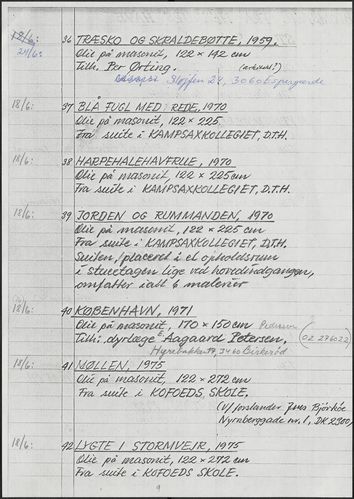 18/6: 36 TRÆSKO OG SKRALDEBØTTE, 1959.
24/6: Olie på masonit, 122 × 142 cm
Tilh. Per Ørting. (arkitekt!)
24, 3060 Espergærde
18/6: 37 BLÅ FUGL MED REDE, 1970
Olie på masonit, 122 × 225 cm
Fra suite i KAMPSAXKOLLEGIET, D.T.H.
18/6: 38 HARPEHALEHAVFRUE, 1970
Olie på masonit, 122 × 225 cm
Fra suite i KAMPSAXKOLLEGIET, D.T.H.
18/6: 39 JORDEN OG RUMMANDEN, 1970
Olie på masonit, 122 × 225 cm
Fra suite i KAMPSAXKOLLEGIET, D.T.H.
Suiten, placeret i et opholdsrum
i stueetagen lige ved hovedindgangen,
omfatter ialt 6 malerier
40 KØBENHAVN, 1971
18/6: Olie på masonit, 170 × 150 cm
Tilh: dyrlæge E. Aagaard Petersen.
3460 Birkerød
41 MØLLEN, 1975
18/6: Olie på masonit, 122 × 272 cm
Fra suite i KOFOEDS SKOLE.
(V/ forstander Jens Bjørhøe
Nyrnberggade nr. 1, DK 2300)
18/6: 42 LYGTE I STORMVEJR, 1975
Olie på masonit, 122 × 272 cm
Fra suite i KOFOEDS SKOLE.
9